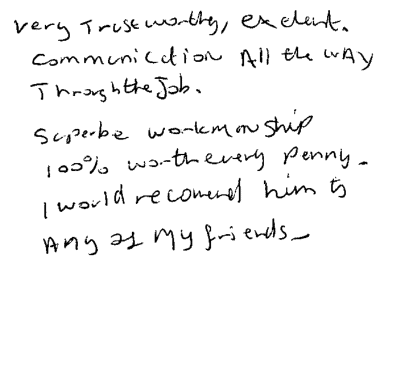 very Trustworthy, excelent.
Communication All the wAy
Through the Job.
Superbe workmanship
100% worth every penny.
I would recomend him to
Any of My friends.